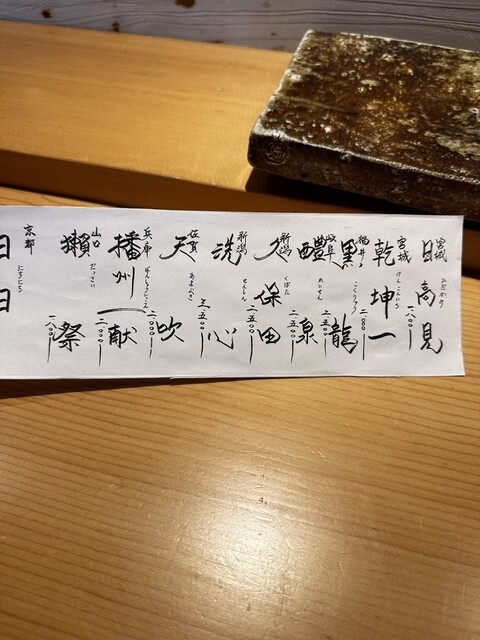 宮城
日高見
ひだかみ
宮城
乾坤一
けんこんいち
福井
黒龍
こくりゅう
岐阜
醴泉
れいせん
二五〇〇
新潟
久保田
くぼた
二五〇〇
新潟
洗心
せんしん
佐賀
天吹
あまぶき
二〇〇〇
兵庫
播州一献
ばんしゅういっこん
二〇〇〇
山口
獺祭
だっさい
一八〇〇
京都
日日
にちにち